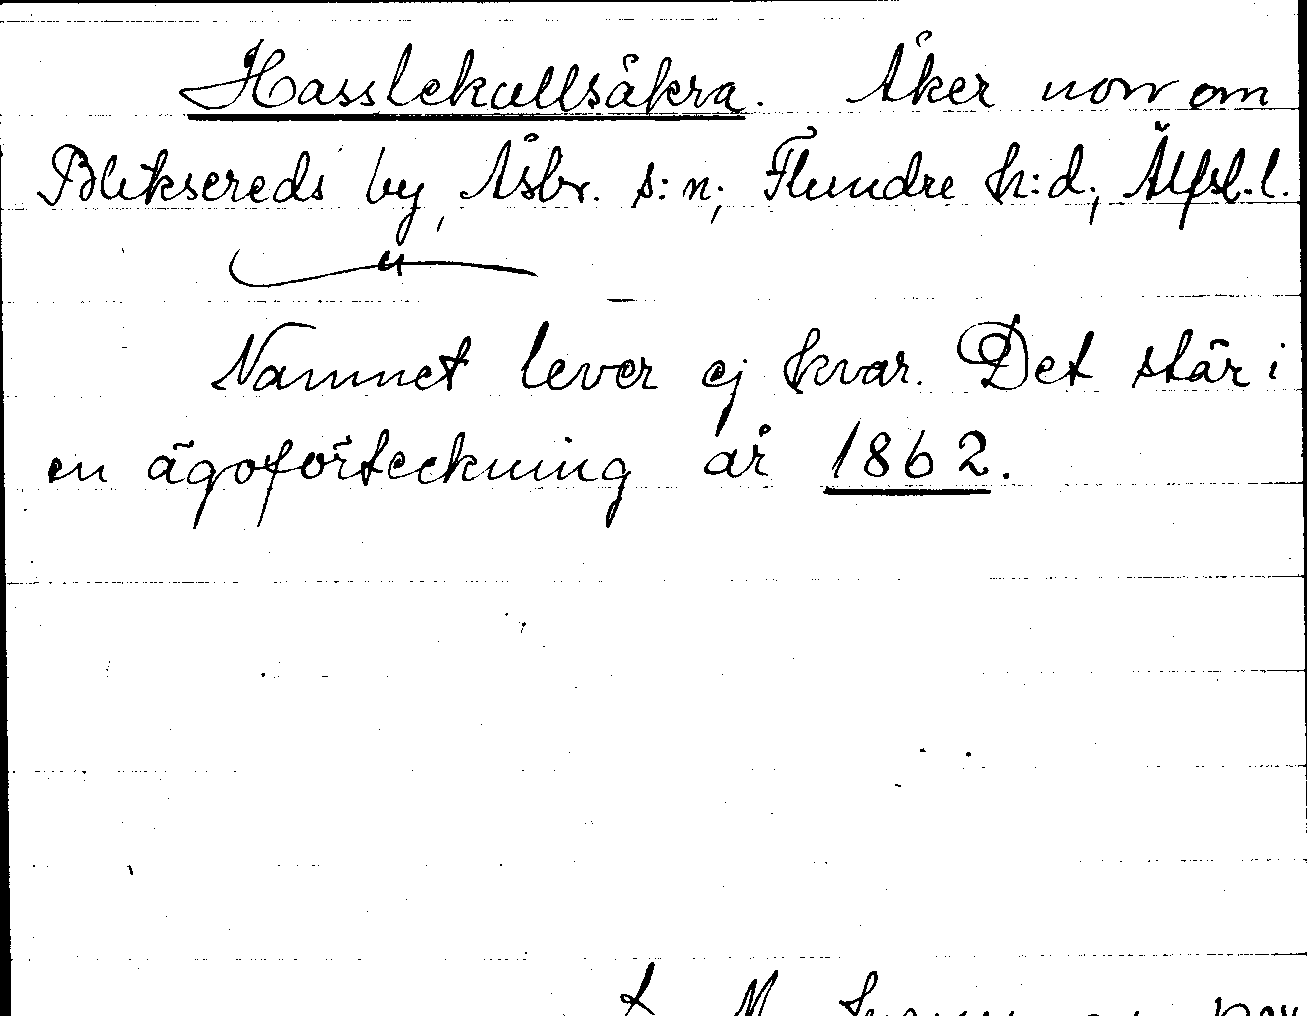 Hasslekullsåkra. Åker norr om
Bliksereds by, Åsbr. s:n; Flundre h:d; Älfsb.l.
Namnet lever ej kvar. Det står i
en ägoförteckning år 1862.